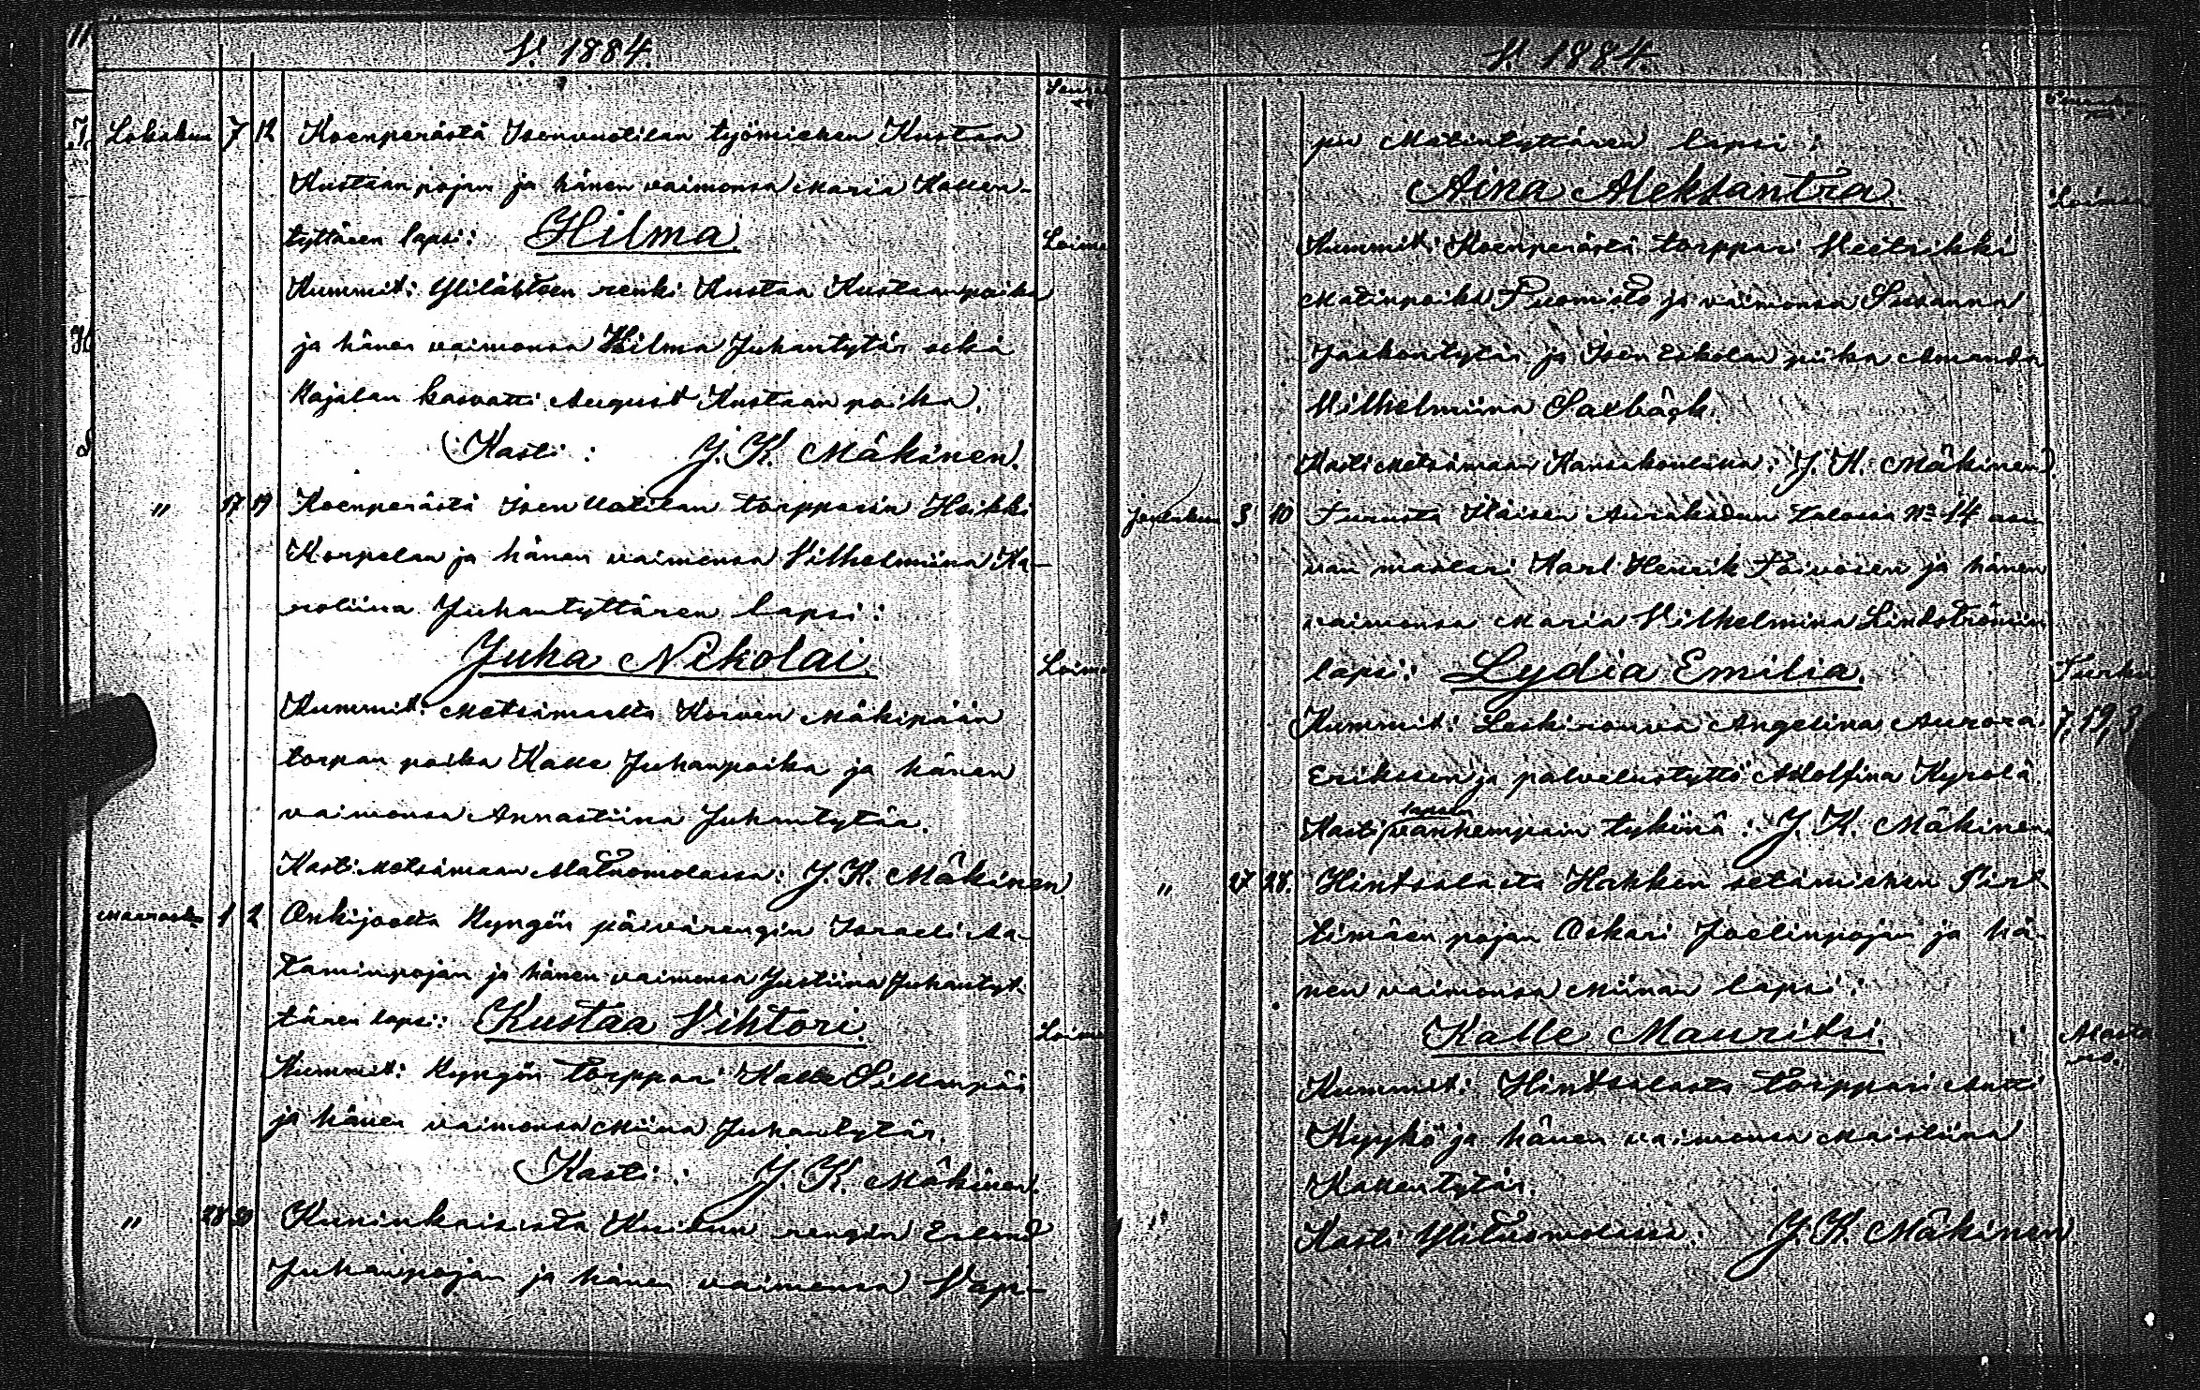 V. 1884.
Lokakuu 7 12 Koenperästä Isenvuotilan työmiehen Kustaa
Kustaanpojan ja hänen vaimonsa Maria Kallen-
tyttären lapsi: Hilma Loima
Kummit: Yliläntsen renki Kustaa Kustaanpoika
ja hänen vaimonsa Hilma Juhantytär sekä
Kajalan kasvatti August Kustaanpoika.
Kasti: J. K. Mäkinen.
" 17 19 Koenperästä Isen Uotilan torpparin Heikki
Korpelan ja hänen vaimonsa Vilhelmiina Ka-
roliina Juhantyttären lapsi:
Juha Nikolai. Loima
Kummit: Metsämaalta Korven Mäkipään
torpan poika Kalle Juhanpoika ja hänen
vaimonsa Annastiina Juhantytär.
Kasti Metsämaan Alatuomolassa: J. K. Mäkinen
Marrask. 1 2 Onkijoelta Kyngön päivärengin Israeli Aa-
taminpojan ja hänen vaimonsa Justiina Juhantyt-
tären lapsi: Kustaa Vihtori. Loima
Kummit: Kyngön torppari Kalle Sillanpää
ja hänen vaimonsa Miina Juhantytär.
Kasti: J. K. Mäkinen.
" 28 30 Kuninkaisista Kuidun rengin Erland
Juhanpojan ja hänen vaimonsa Vap-
V. 1884.
pu Matintyttären lapsi:
Aina Aleksantra. Loima
Kummit: Koenperästä torppari Veetrikki
Matinpoika Tuomisto ja vaimonsa Susanna
Jaakontytär ja Isen Eskolan piika Amanda
Vilhelmiina Saxbäck.
Kasti Metsämaan Kansakoululla: J. K. Mäkinen
Joulukuu 3 10 Turusta Itäisen Aurakadun talossa No 14 asu-
van maalari Karl Henrik Toivosen ja hänen
vaimonsa Maria Vilhelmina Lindströmin
lapsi: Lydia Emilia. Turku
Kummit: Leskirouva Angelina Aurora 7,19,3
Erikssen ja palvelustyttö Adolfina Kyrölä.
Kasti lapsen vanhempain tykönä: J. K. Mäkinen
" 27 28. Hintsalasta Hakken setämiehen Pirt
timäen pojan Oskari Joelinpojan ja hä-
nen vaimonsa Miinan lapsi:
Kalle Mauritsi. Alasta
ro.
Kummit: Hintsalasta torppari Antti
Kyykö ja hänen vaimonsa Maistiina
Kallentytär.
Kasti Ylituomolassa: J. K. Mäkinen